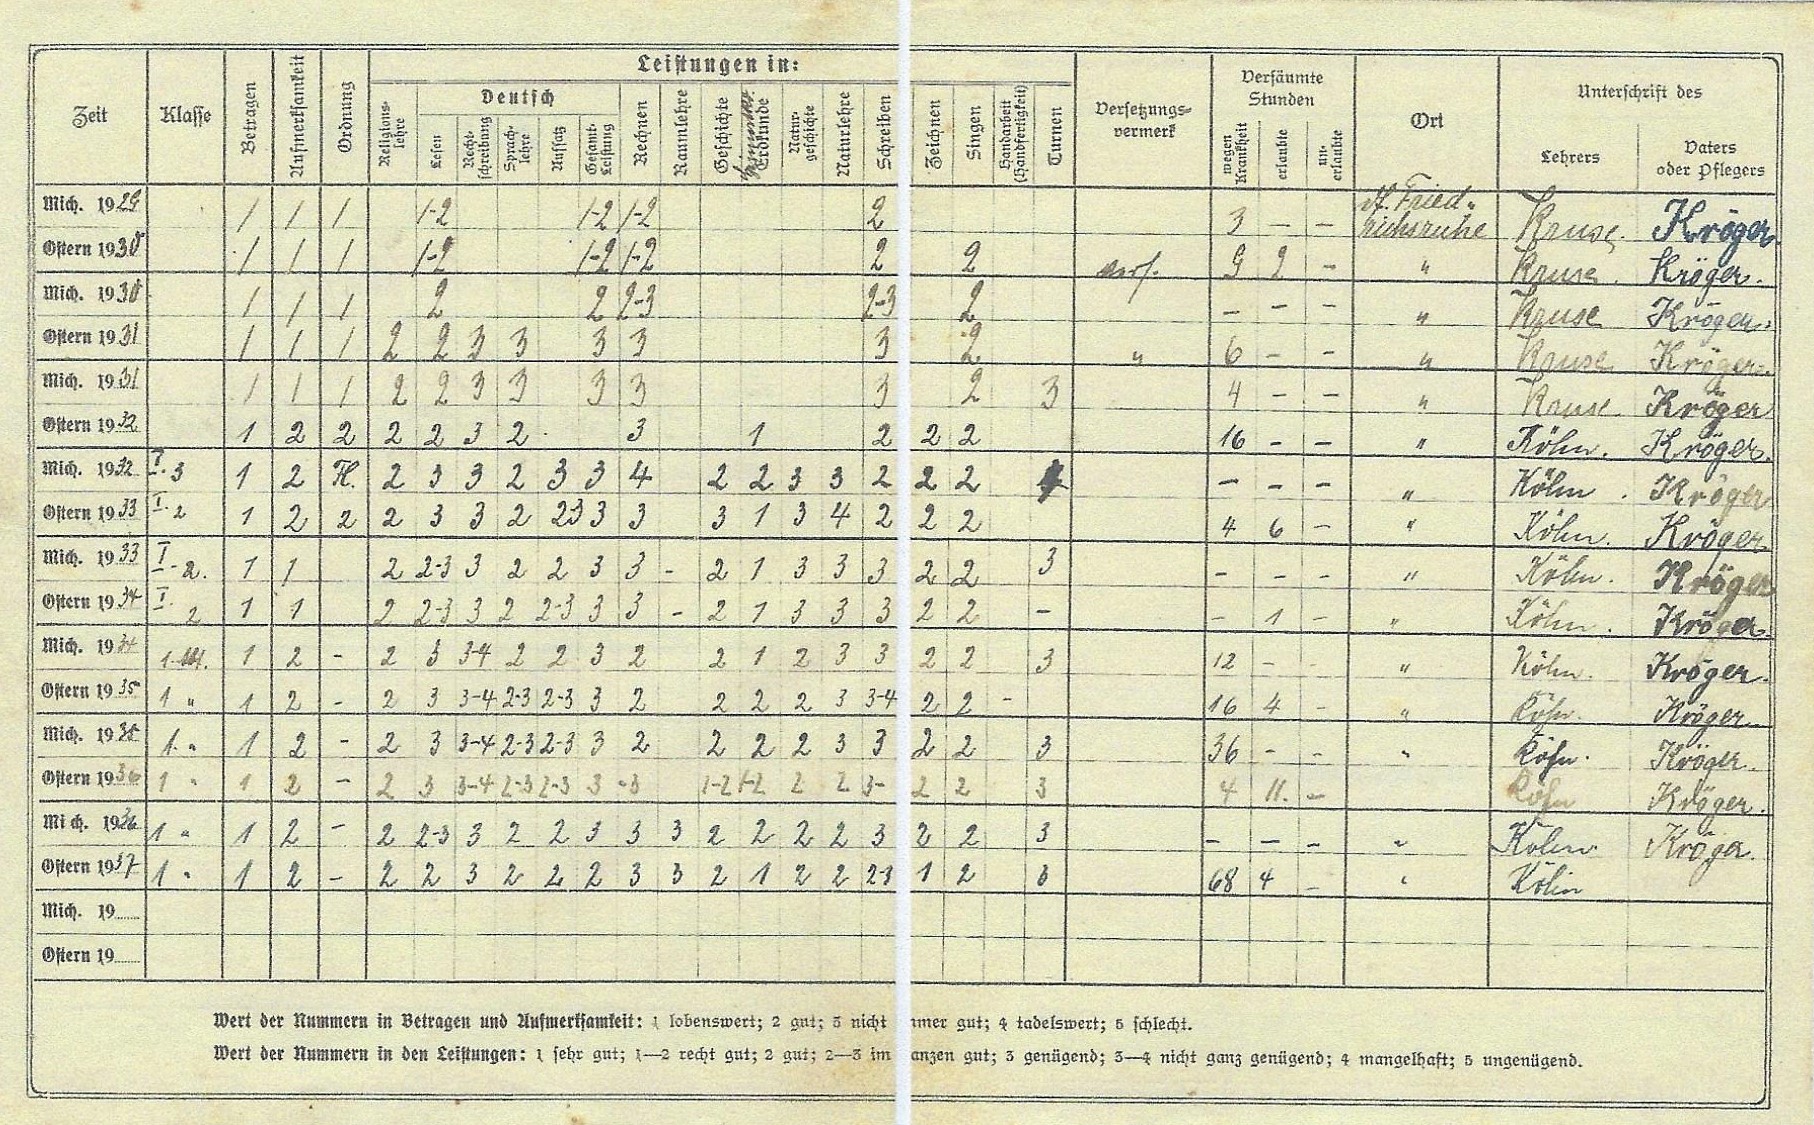 Leistungen in:
Zeit Klasse Betragen Aufmerksamkeit Ordnung Religions-lehre Deutsch Lesen Recht-schreibung Sprach-lehre Aufsatz Gesamt-Leistung Rechnen Raumlehre Geschichte Erdkunde Natur-geschichte Naturlehre Schreiben Zeichnen Singen Handarbeit (Handfertigkeit) Turnen Versetzungs-vermerk Versäumte Stunden wegen Krankheit erlaubte un-erlaubte Ort Unterschrift des Lehrers Vaters oder Pflegers
Mich. 1929 1 1 1 1-2 1-2 1-2 2 3 – – Fried-richsruhe Kruse. Kröger
Ostern 1930 1 1 1 1-2 1-2 1-2 2 2 vers. 9 2 – " Kruse. Kröger.
Mich. 1930 1 1 1 2 2 2-3 2-3 2 – – – " Kruse Kröger.
Ostern 1931 1 1 1 2 2 3 3 3 3 3 2 " 6 – – " Kruse Kröger.
Mich. 1931 1 1 1 2 2 3 3 3 3 3 2 3 4 – – " Kruse Kröger
Ostern 1932 1 2 2 2 2 3 2 3 1 2 2 2 16 – – " Köhn. Kröger.
Mich. 1932 I. 3 1 2 2 3 3 2 3 3 4 2 2 3 3 2 2 2 – – – " Köhn. Kröger
Ostern 1933 I. 2 1 2 2 2 3 3 2 23 3 3 3 1 3 4 2 2 2 4 6 – " Köhn. Kröger
Mich. 1933 I-2. 1 1 2 2-3 3 2 2 3 3 – 2 1 3 3 3 2 2 3 – – – " Köhn. Kröger
Ostern 1934 I. 2 1 1 2 2-3 3 2 2-3 3 3 – 2 1 3 3 3 2 2 – – 1 – " Köhn. Kröger.
Mich. 1934 1. 1 2 – 2 3 3-4 2 2 3 2 2 1 2 3 3 2 2 3 12 – – " Köhn. Kröger.
Ostern 1935 1 " 1 2 – 2 3 3-4 2-3 2-3 3 2 2 2 2 3 3-4 2 2 – 16 4 – " Köhn. Kröger
Mich. 1935 1. " 1 2 – 2 3 3-4 2-3 2-3 3 2 2 2 2 3 3 2 2 3 36 – – " Köhn. Kröger
Ostern 1936 1 " 1 2 – 2 3 3-4 2-3 2-3 3 -3 1-2 1-2 2 2 3- 2 2 3 4 11. – Köhn Kröger.
Mich. 1936 1 " 1 2 – 2 2-3 3 2 2 3 3 3 2 2 2 2 3 2 2 3 – – – " Köhn Kröger.
Ostern 1937 1 " 1 2 – 2 2 3 2 2 2 3 3 2 1 2 2 2-3 1 2 3 68 4 – " Köhn
Mich. 19
Ostern 19
Wert der Nummern in Betragen und Aufmerksamkeit: 1 lobenswert; 2 gut; 3 nicht mmer gut; 4 tadelswert; 5 schlecht.
Wert der Nummern in den Leistungen: 1 sehr gut; 1—2 recht gut; 2 gut; 2—3 im anzen gut; 3 genügend; 3—4 nicht ganz genügend; 4 mangelhaft; 5 ungenügend.